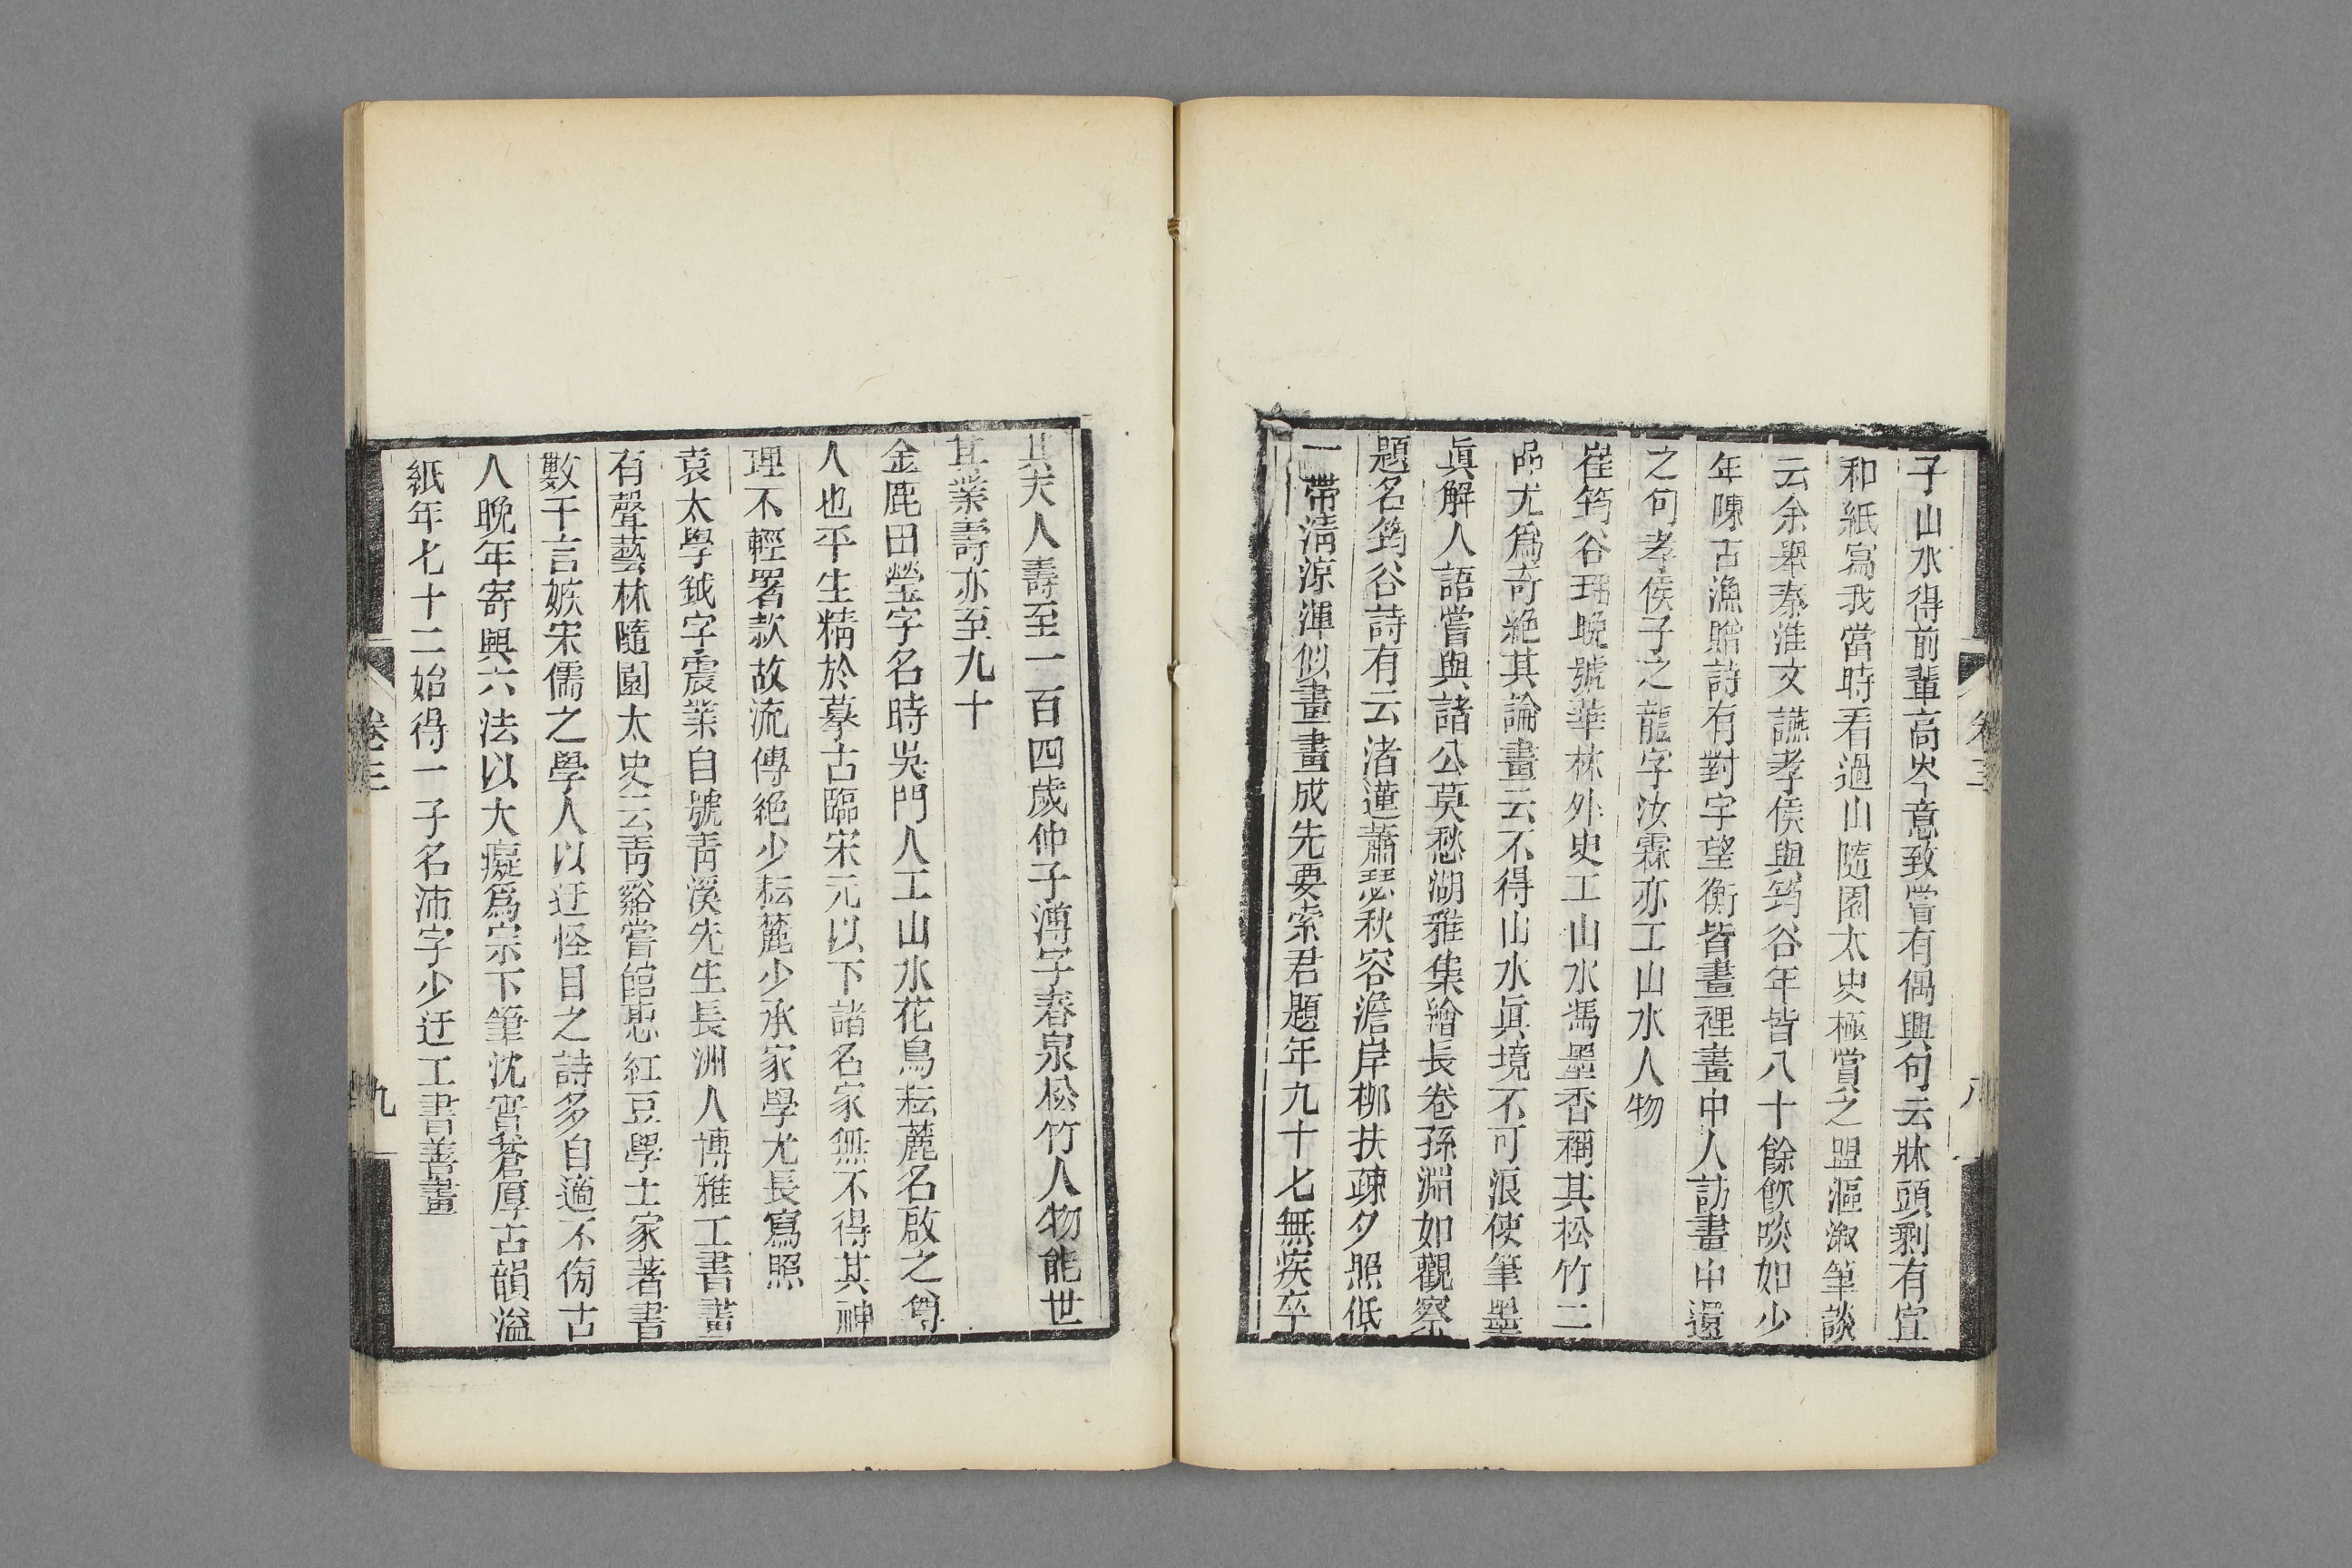 子山水得前輩高岑意致嘗有偶興句云牀頭剩有宜
和紙寫我當時看過山隨園太史極賞之盟漚溆筆談
云余舉秦淮文讌孝侯與筠谷年皆八十餘飲啖如少
年陳古漁贈詩有對字望衡皆畫裡畫中人訪畫中還
之句孝侯子之龍字汝霖亦工山水人物
崔筠谷瑶晚號華林外史工山水馮墨香稱其松竹二
品尤為奇絶其論畫云不得山水眞境不可浪使筆墨
眞解人語嘗與諸公莫愁湖雅集繪長卷孫淵如觀察
題名筠谷詩有云渚蓮蕭瑟秋容澹岸柳扶疎夕照低
一帶淸涼渾似畫畫成先要索君題年九十七無疾卒
卷三
八
其夫人壽至一百四歲仲子溥字春泉松竹人物能世
其業壽亦至九十
金鹿田瑩字名時吳門人工山水花鳥耘蘆名啟之尊
人也平生精於摹古臨宋元以下諸名家無不得其神
理不輕署款故流傳絶少耘麓少承家學尤長寫照
袁太學鉞字震業自號靑溪先生長洲人博雅工書畫
有聲藝林隨園太史云靑谿嘗館惠紅豆學士家著書
數千言嫉宋儒之學人以迂怪目之詩多自適不傍古
人晚年寄興六法以大癡爲宗下筆沈實蒼厚古韻溢
紙年七十二始得一子名沛字少迂工書善畫
卷三
九